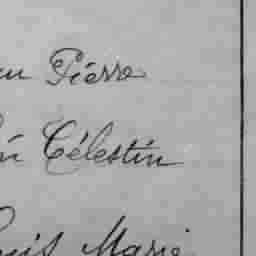 Pierre
Célestin
Louis Marie